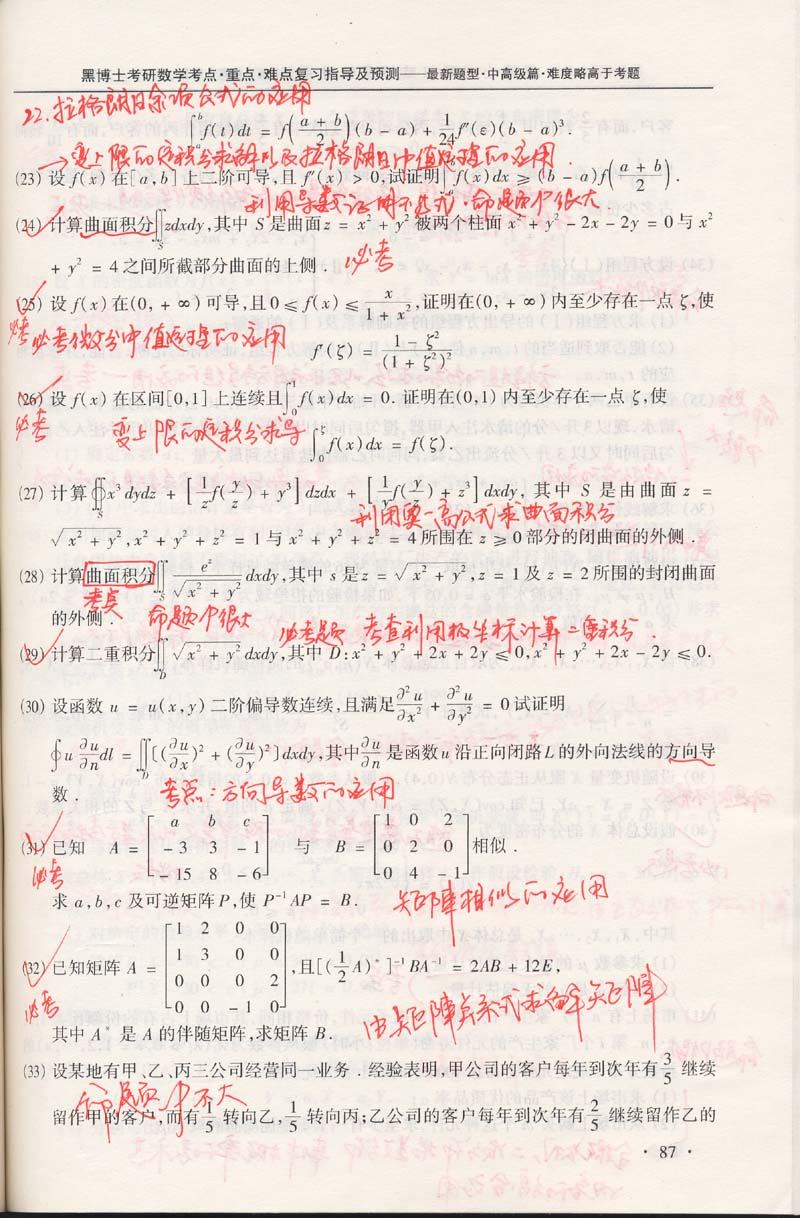 黑博士考研数学考点·重点·难点复习指导及预测——最新题型·中高级篇·难度略高于考题
22.拉格朗日余项公式的应用
∫_a^b f(t)dt = f((a+b)/2)(b − a) + (1/24)f″(ε)(b − a)³.
→变上限的定积分求解以及拉格朗日中值定理的应用.
(23) 设 f(x) 在[a,b] 上二阶可导,且 f″(x) > 0,试证明∫_a^b f(x)dx ≥ (b − a)f((a+b)/2).
利用导数证明不等式·命题户很大
(24) 计算曲面积分∬_S zdxdy,其中 S 是曲面z = x² + y² 被两个柱面 x² + y² − 2x − 2y = 0 与 x²
+ y² = 4 之间所截部分曲面的上侧. 必考
(25) 设 f(x) 在(0, + ∞) 可导,且 0 ≤ f(x) ≤ x/(1 + x²),证明在(0, + ∞) 内至少存在一点 ζ,使
必考 必考微分中值定理的应用
f′(ζ) = (1 − ζ²)/(1 + ζ²)²
(26) 设 f(x) 在区间[0,1] 上连续且∫_0^1 f(x)dx = 0. 证明在(0,1) 内至少存在一点 ζ,使
必考 变上限的定积分求导 ∫_0^ζ f(x)dx = f(ζ).
(27) 计算∯_S x³dydz + [(1/z)f(y/z) + y³]dzdx + [(1/y)f(y/z) + z³]dxdy, 其中 S 是由曲面 z =
利用奥—高公式求曲面积分
√(x² + y²), x² + y² + z² = 1 与 x² + y² + z² = 4 所围在 z ≥ 0 部分的闭曲面的外侧.
(28) 计算曲面积分∬_S e^z/√(x² + y²) dxdy,其中 s 是 z = √(x² + y²), z = 1 及 z = 2 所围的封闭曲面
考点
的外侧. 命题户很大 必考题 考查利用极坐标计算二重积分.
(29) 计算二重积分∬_D √(x² + y²) dxdy,其中 D:x² + y² + 2x + 2y ≤ 0,x² + y² + 2x − 2y ≤ 0.
(30) 设函数 u = u(x,y) 二阶偏导数连续,且满足∂²u/∂x² + ∂²u/∂y² = 0 试证明
∮u ∂u/∂n dl = ∬_D[(∂u/∂x)² + (∂u/∂y)²]dxdy,其中∂u/∂n 是函数 u 沿正向闭路L 的外向法线的方向导
数. 考点:方向导数的应用
(31) 已知 A = [a b c; −3 3 −1; −15 8 −6] 与 B = [1 0 2; 0 2 0; 0 4 −1] 相似.
必考
求 a,b,c 及可逆矩阵 P,使 P⁻¹AP = B. 矩阵相似的应用
(32) 已知矩阵 A = [1 2 0 0; 1 3 0 0; 0 0 0 2; 0 0 −1 0],且[(½A)*]⁻¹BA⁻¹ = 2AB + 12E,
必考 由矩阵关系式求解矩阵
其中 A* 是 A 的伴随矩阵,求矩阵 B.
(33) 设某地有甲、乙、丙三公司经营同一业务.经验表明,甲公司的客户每年到次年有3/5 继续
命题户不大
留作甲的客户,而有1/5 转向乙,1/5 转向丙;乙公司的客户每年到次年有2/5 继续留作乙的
· 87 ·